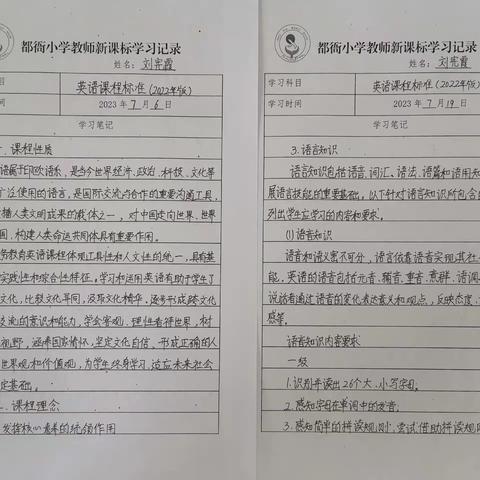 都衙小学教师新课标学习记录
姓名：刘宪霞
科目 英语课程标准(2022年版)
时间 2023年7月6日
学习笔记
课程性质
语属于印欧语系，是当今世界经济、政治、科技、文化等
广泛使用的语言，是国际交流与合作的重要沟通工具，
播人类文明成果的载体之一，对中国走向世界、世界
国、构建人类命运共同体具有重要作用。
务教育英语课程体现工具性和人文性的统一，具有基
实践性和综合性特征。学习和运用英语有助于学生了
文化，比较文化异同，汲取文化精华，逐步形成跨文化
交流的意识和能力，学会客观、理性看待世界，树
视野，涵养家国情怀，坚定文化自信，形成正确的人
世界观和价值观，为学生终身学习、适应未来社会
定基础。
二、课程理念
发挥核心素养的统领作用
都衙小学教师新课标学习记录
姓名：刘宪霞
学习科目 英语课程标准(2022年版)
学习时间 2023年7月19日
学习笔记
3.语言知识
语言知识包括语音、词汇、语法、语篇和语用知
展语言技能的重要基础。以下针对语言知识所包含的
列出学生应学习的内容和要求。
(1)语音知识
语音和语义密不可分，语言依靠语音实现其社
能。英语的语音包括元音、辅音、重音、意群、语调
说话者通过语音的变化表达意义和观点，反映态度、
感等。
语音知识内容要求
一级
1.识别并读出26个大、小写字母。
2.感知字母在单词中的发音。
3.感知简单的拼读规则，尝试借助拼读规